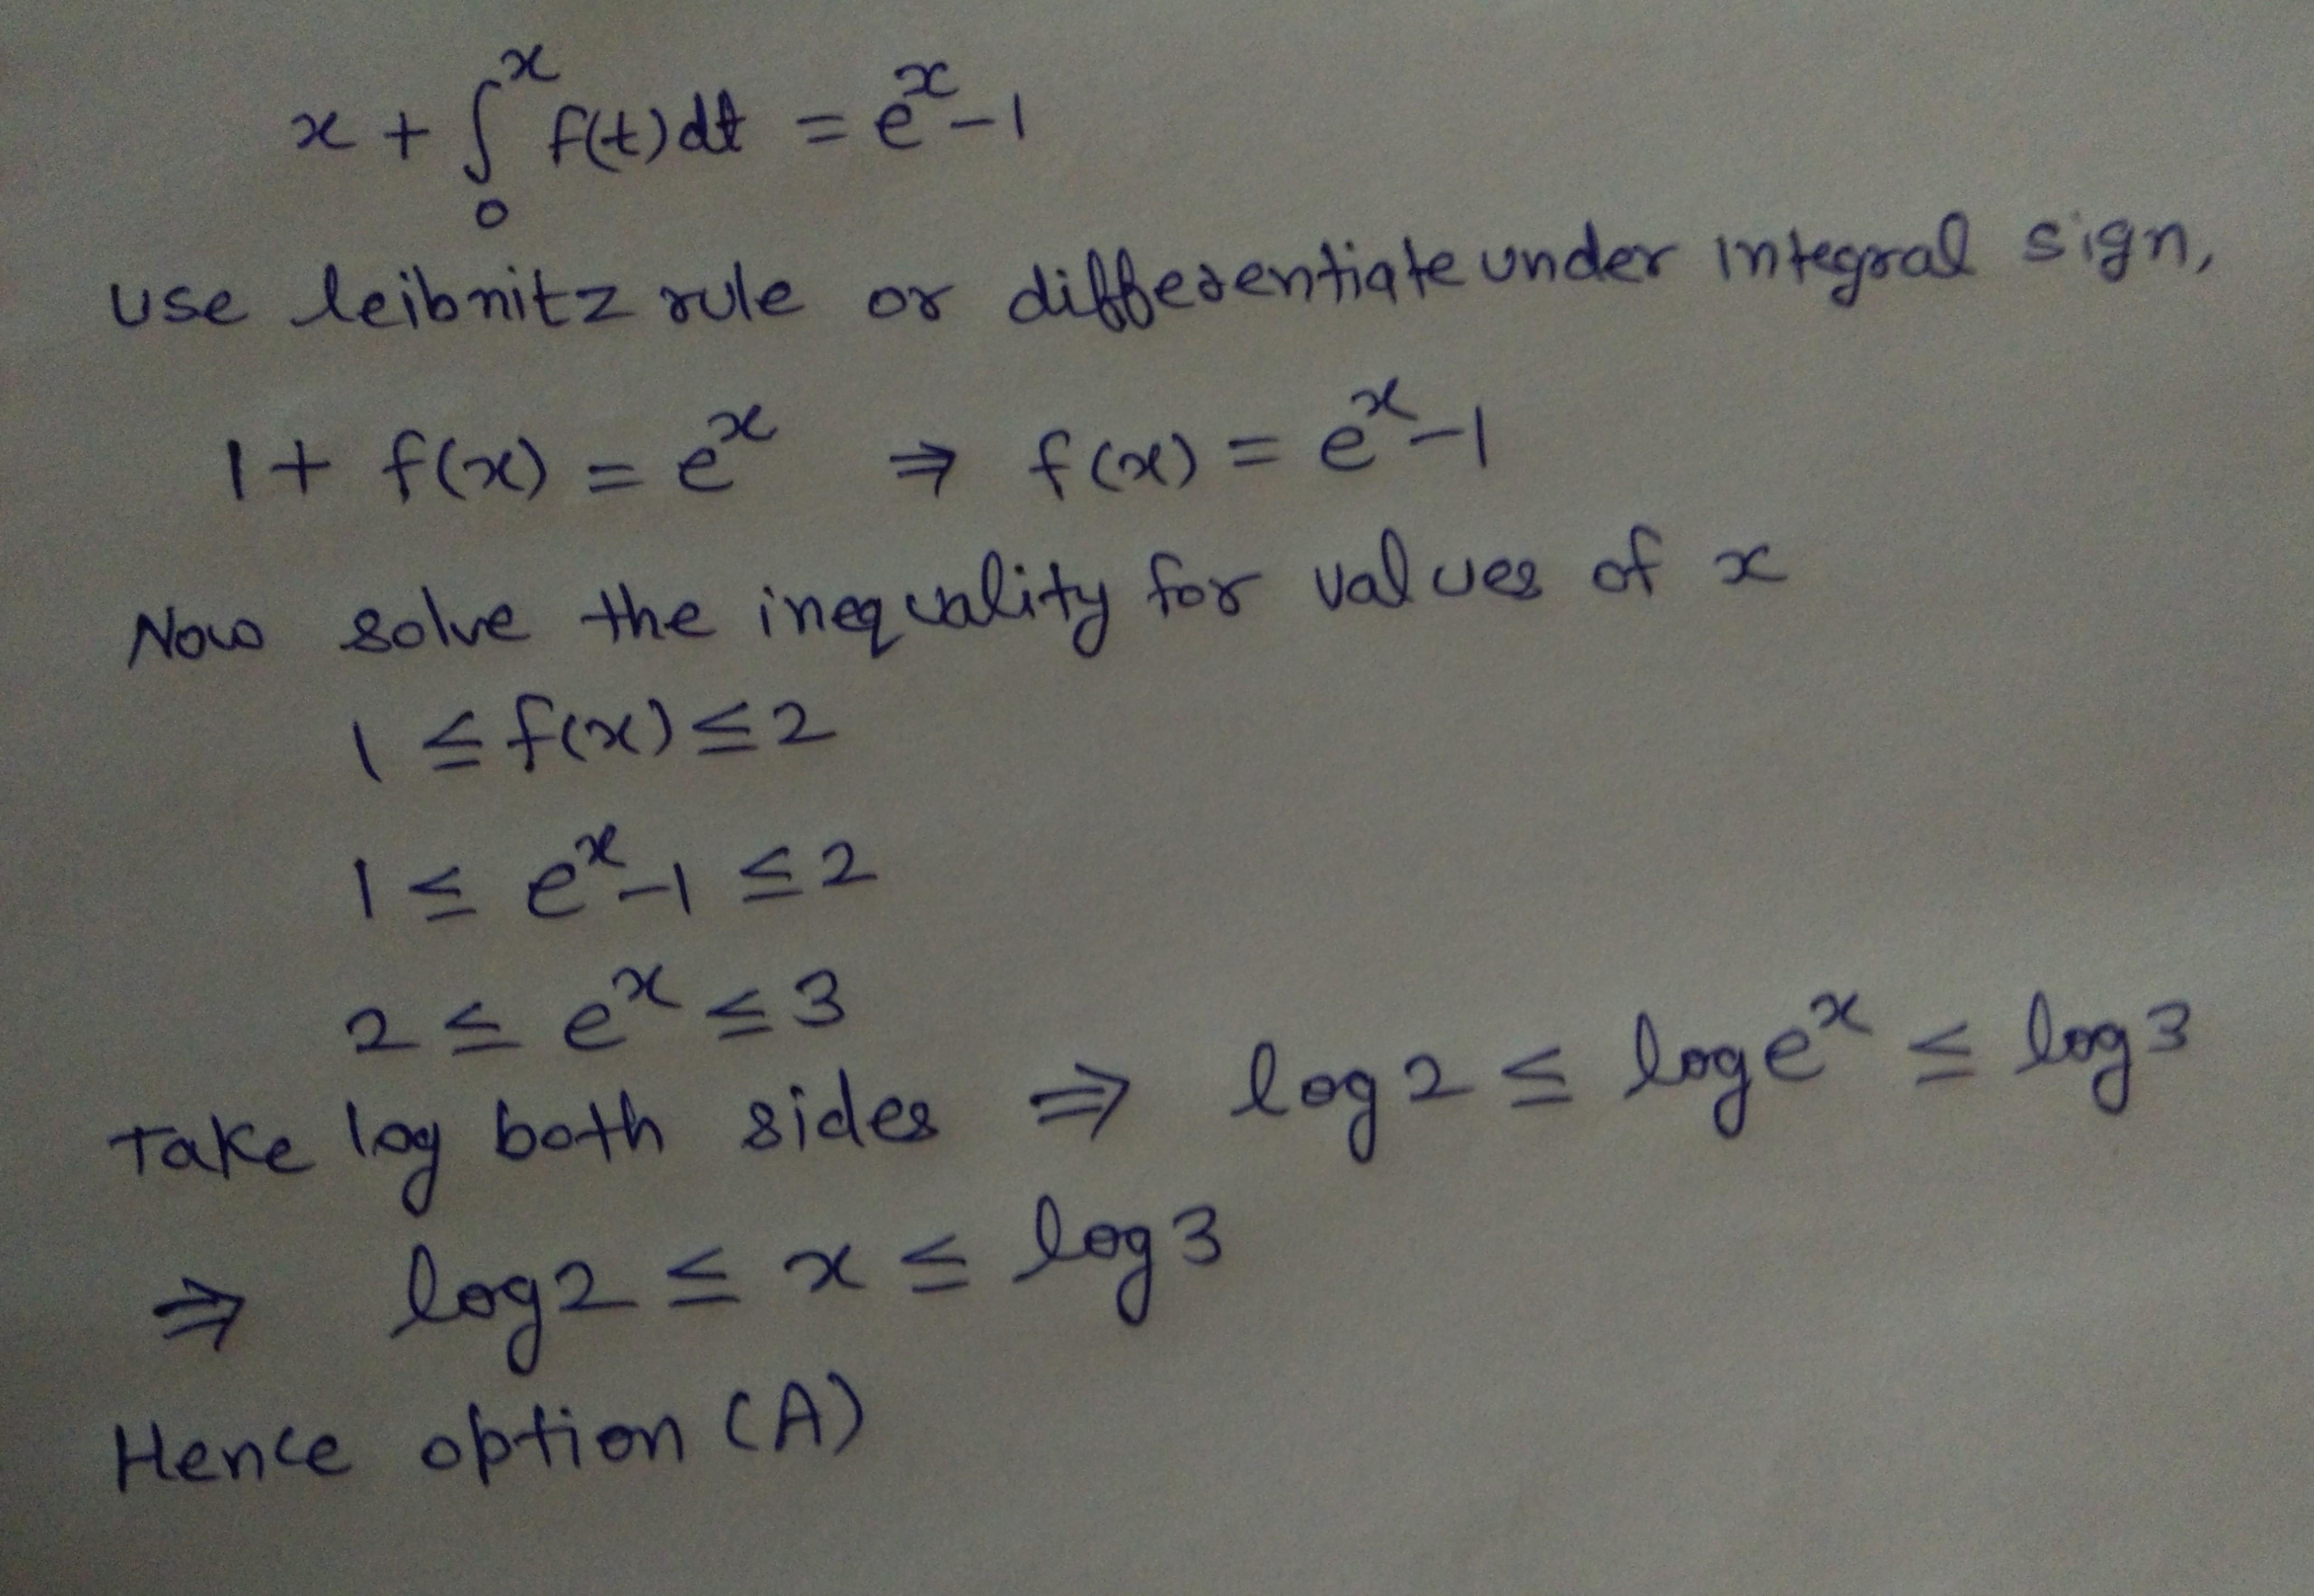 x + ∫₀ˣ f(t)dt = eˣ-1
use leibnitz rule or differentiate under integral sign,
1+ f(x) = eˣ ⇒ f(x) = eˣ-1
Now solve the inequality for values of x
1 ≤ f(x) ≤ 2
1 ≤ eˣ-1 ≤ 2
2 ≤ eˣ ≤ 3
Take log both sides ⇒ log 2 ≤ log eˣ ≤ log 3
⇒ log 2 ≤ x ≤ log 3
Hence option (A)